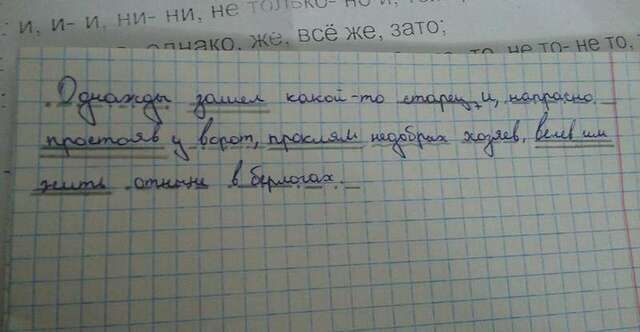 и, и- и, ни- ни, не только- но и, т
однако, же, всё же, зато;
то, не то- не то,
Однажды зашел какой-то старец, и, напрасно
простояв у ворот, проклял недобрых хозяев, велев им
жить отныне в берлогах.